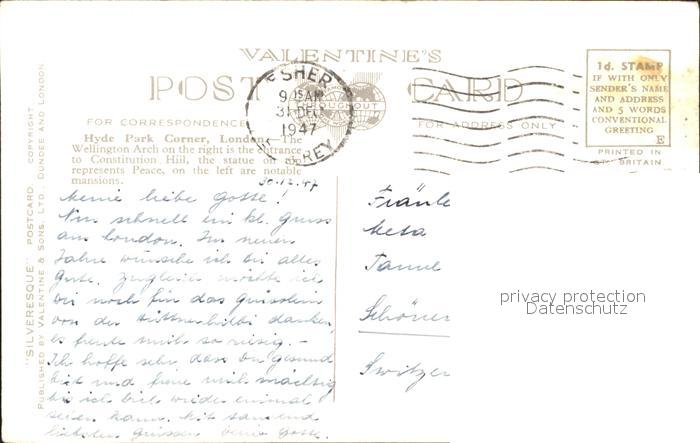 VALENTINE'S
POST CARD
ESHER
9 15 AM
31 DEC
1947
SURREY
THROUGHOUT
1d. STAMP
IF WITH ONLY
SENDER'S NAME
AND ADDRESS
AND 5 WORDS
CONVENTIONAL
GREETING
E
PRINTED IN
GT. BRITAIN
FOR CORRESPONDENCE
FOR ADDRESS ONLY
Hyde Park Corner, London. The
Wellington Arch on the right is the entrance
to Constitution Hill, the statue on top
represents Peace, on the left are notable
mansions.
"SILVERESQUE" POSTCARD. COPYRIGHT
PUBLISHED BY VALENTINE & SONS, LTD., DUNDEE AND LONDON.
30.12.47
Meine liebe Gotte!
Nur schnell ein kl. Gruss
aus London. Im neuen
Jahre wünsche ich dir alles
Gute. Zugleich möchte ich
dir noch für das
von der danken,
es freute mich so riesig. –
Ich hoffe sehr dass du gesund
bist und freue mich mächtig
bis ich dich wieder einmal
sehen kann. Mit tausend
liebsten Grüssen deine
Fräule
Meta
Tanne
Schöner
Switzer
privacy protection
Datenschutz